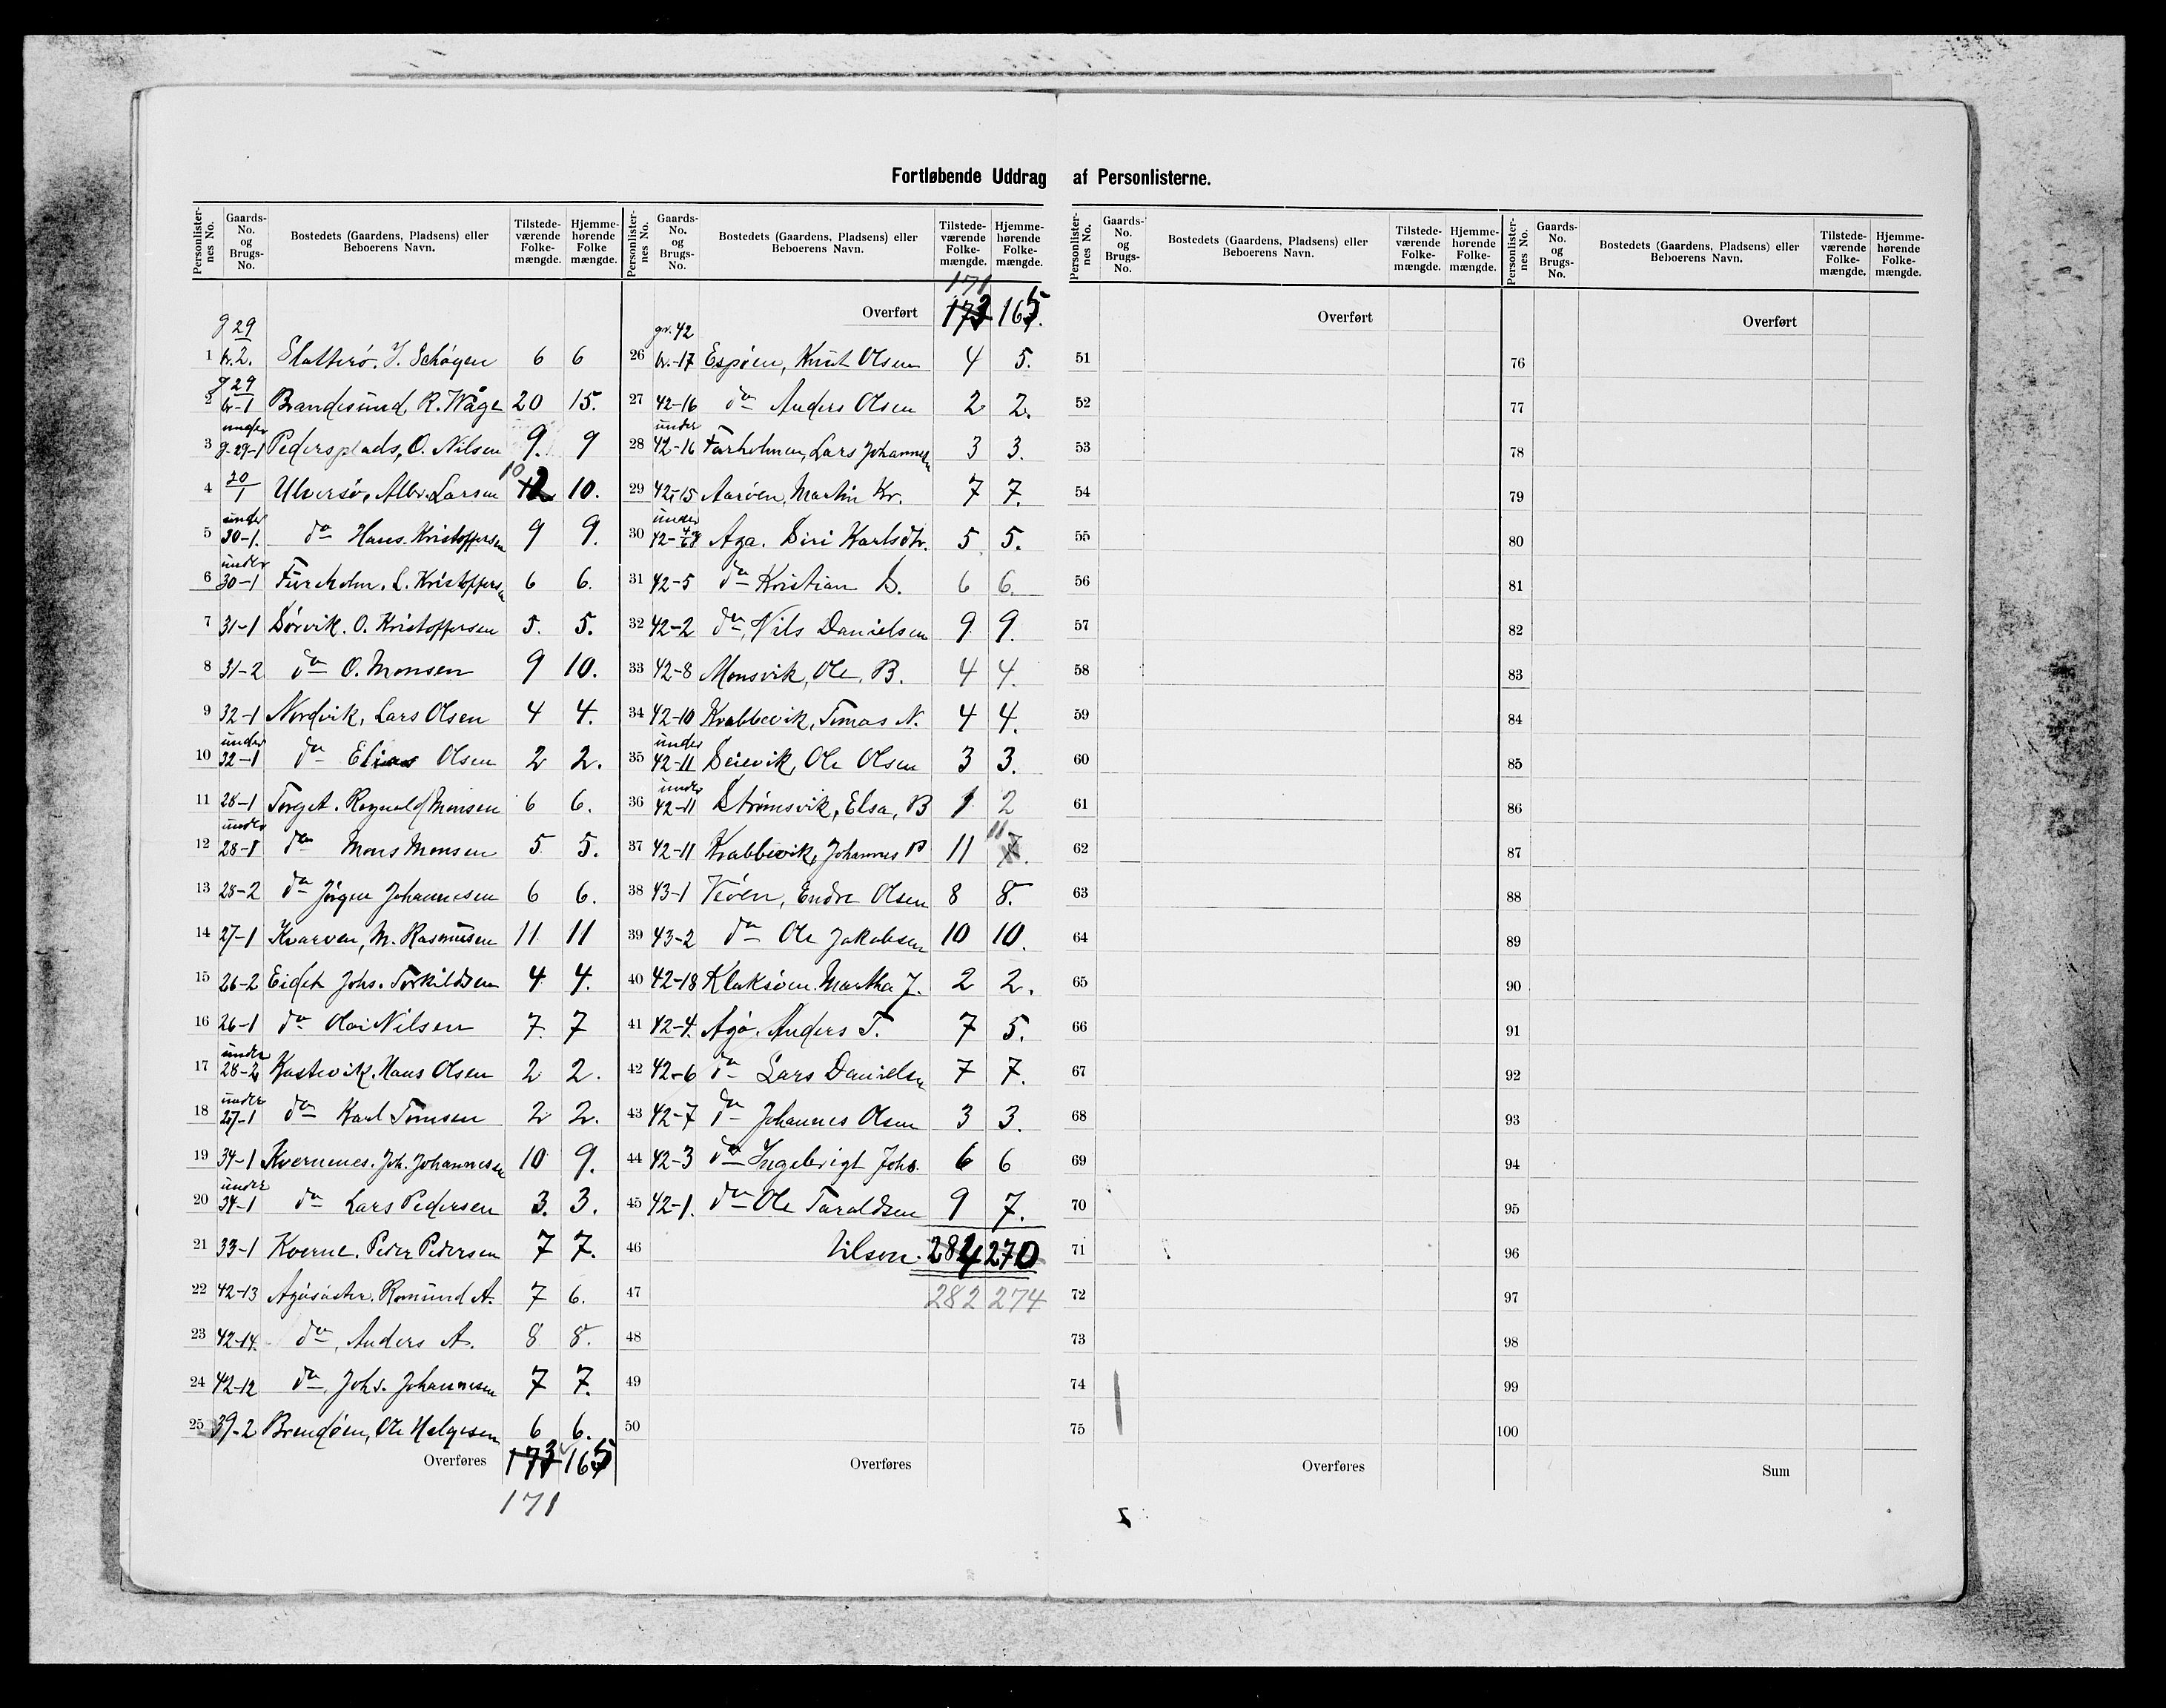 Fortløbende Uddrag af Personlisterne.
Personlisternes No. Gaards-No. og Brugs-No. Bostedets (Gaardens, Pladsens) eller Beboerens Navn. Tilstedeværende Folkemængde. Hjemmehørende Folkemængde.
1 g 29 br. 2. Slatterø. J. Schøgen 6 6
2 g 29 br-1 Brandesund, R. Wåge 20 15.
3 under g. 29-1 Pedersplads, O. Nilsen 9. 9
4 30/1 Ulversø, Albr. Larsen 12 10 10.
5 under 30-1. do Hans Kristoffersen 9 9.
6 under 30-1 Fureholm. L. Kristoffersen 6 6.
7 31-1 Sørvik. O. Kristoffersen 5. 5.
8 31-2 do O. Monsen 9 10.
9 32-1 Nordvik, Lars Olsen 4 4.
10 under 32-1 do Elias Olsen 2 2.
11 28-1 Torget. Rognald Monsen 6 6.
12 under 28-1 do Mons Monsen 5 5.
13 28-2 do Jørgen Johannesen 6 6.
14 27-1 Kvarven, M. Rasmusen 11 11
15 26-2 Eidet Johs. Torkildsen 4 4.
16 26-1 do Olai Nilsen 7. 7
17 under 28-2 Kastevik. Hans Olsen 2 2.
18 under 27-1 do Karl Tomsen 2 2.
19 34-1 Kvernenes. Joh. Johannesen 10 9.
20 under 34-1 do Lars Pedersen 3. 3.
21 33-1 Kverne. Peder Pedersen 7 7.
22 42-13 Romund A. 7 6.
23 42-14. do, Anders A. 8 8.
24 42-12 do, Johs. Johannesen 7 7.
25 39-2 Brendøen, Ole Helgesen 6 6.
Overføres 173 165
171
Overført 171 173 165.
26 gr. 42 br.-17 Espøen, Knut Olsen 4 5.
27 42-16 do Anders Olsen 2 2.
28 under 42-16 Farholmen, Lars Johannesen 3 3.
29 42-15 Aarøen, Martin Kr. 7 7.
30 under Aga. Siri Karlsdtr. 5 5.
31 42-5 do Kristian S. 6 6.
32 42-2 do, Nils Danielsen 9 9.
33 42-8 Monsvik, Ole, B. 4 4.
34 42-10 Krabbevik, Tomas N. 4 4.
35 under 42-11 Seievik, Ole Olsen 3 3.
36 under 42-11 Strømsvik, Elsa, B 1 2
37 42-11 Krabbevik, Johannes P 11 11 7.
38 43-1 Veøen, Endre Olsen 8 8.
39 43-2 do Ole Jakobsen 10 10.
40 42-18 Klaksøen. Martha J. 2 2.
41 42-4. Agø. Anders T. 7 5.
42 42-6 do Lars Danielsen 7 7.
43 42-7 do Johannes Olsen 3 3.
44 42-3 do Ingebrigt Johs. 6 6
45 42-1. do Ole Taraldsen 9 7.
46 284 270
47 282 274
48
49
50
Overføres
Personlisternes No. Gaards-No. og Brugs-No. Bostedets (Gaardens, Pladsens) eller Beboerens Navn. Tilstedeværende Folkemængde. Hjemmehørende Folkemængde.
Overført
51
52
53
54
55
56
57
58
59
60
61
62
63
64
65
66
67
68
69
70
71
72
73
74
75
Overføres
Overført
76
77
78
79
80
81
82
83
84
85
86
87
88
89
90
91
92
93
94
95
96
97
98
99
100
Sum